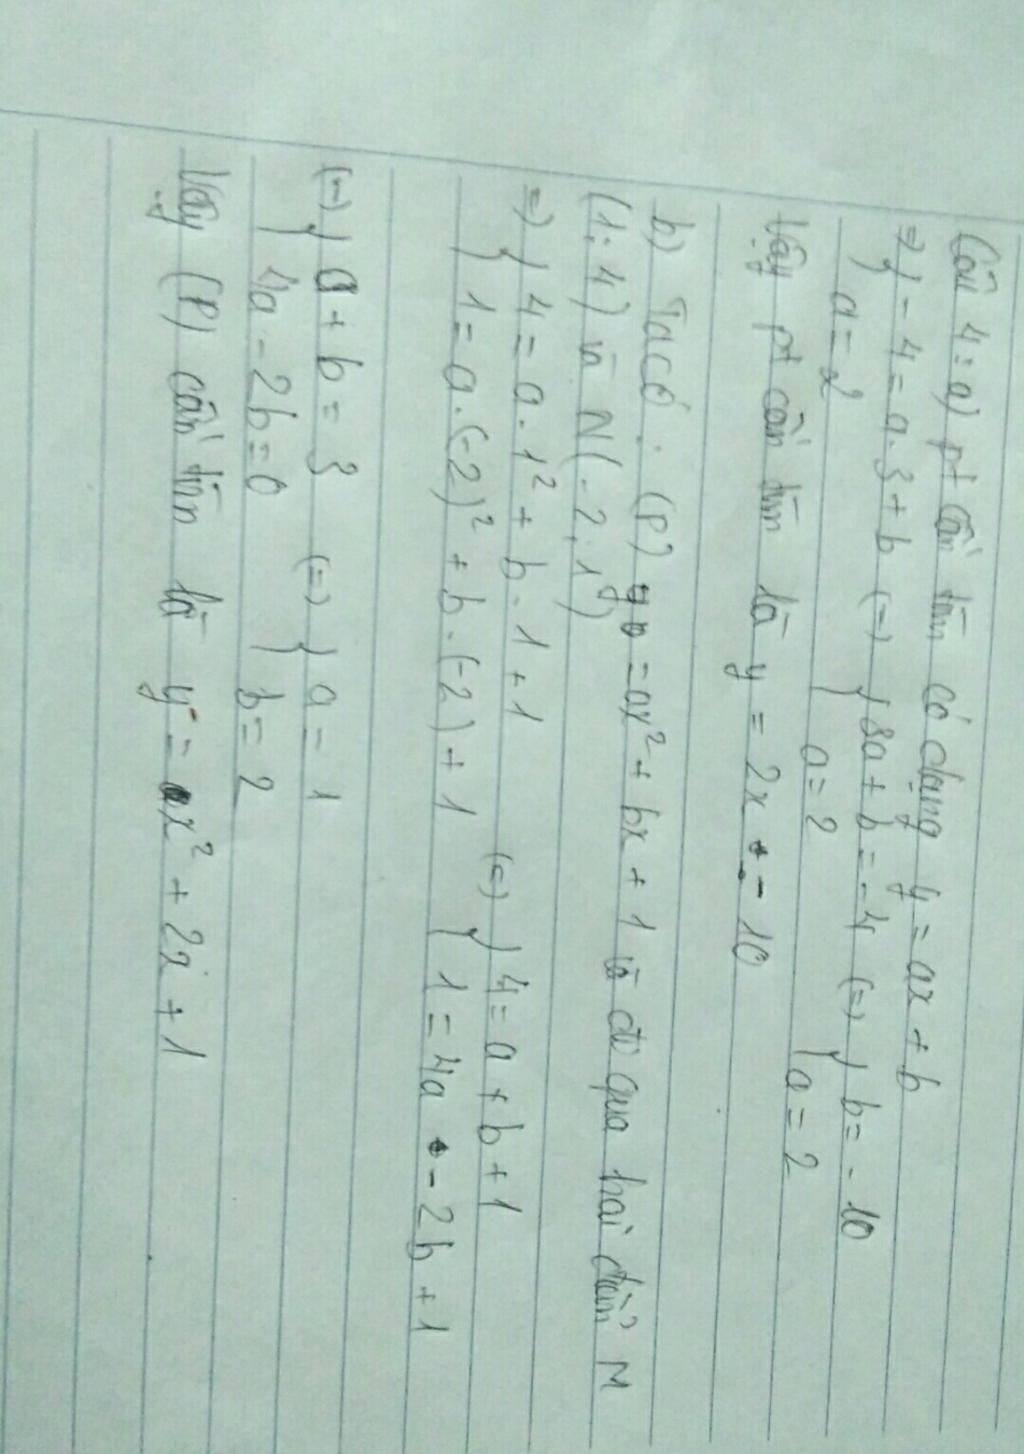 Câu 4: a) pt cần tìm có dạng y = ax + b
=> { - 4 = a . 3 + b (=) { 3a + b = - 4 (=) { b = - 10
a = 2 { a = 2 { a = 2
Vậy pt cần tìm là y = 2x - 10
b) Ta có : (P) y = ax² + bx + 1 và đi qua hai điểm M
(1; 4) và N(- 2; 1)
=) { 4 = a . 1² + b . 1 + 1 (=) { 4 = a + b + 1
{ 1 = a . (-2)² + b . (-2) + 1 { 1 = 4a - 2b + 1
(=) { a + b = 3 (=) { a = 1
{ 4a - 2b = 0 { b = 2
Vậy (P) cần tìm là y = x² + 2x + 1